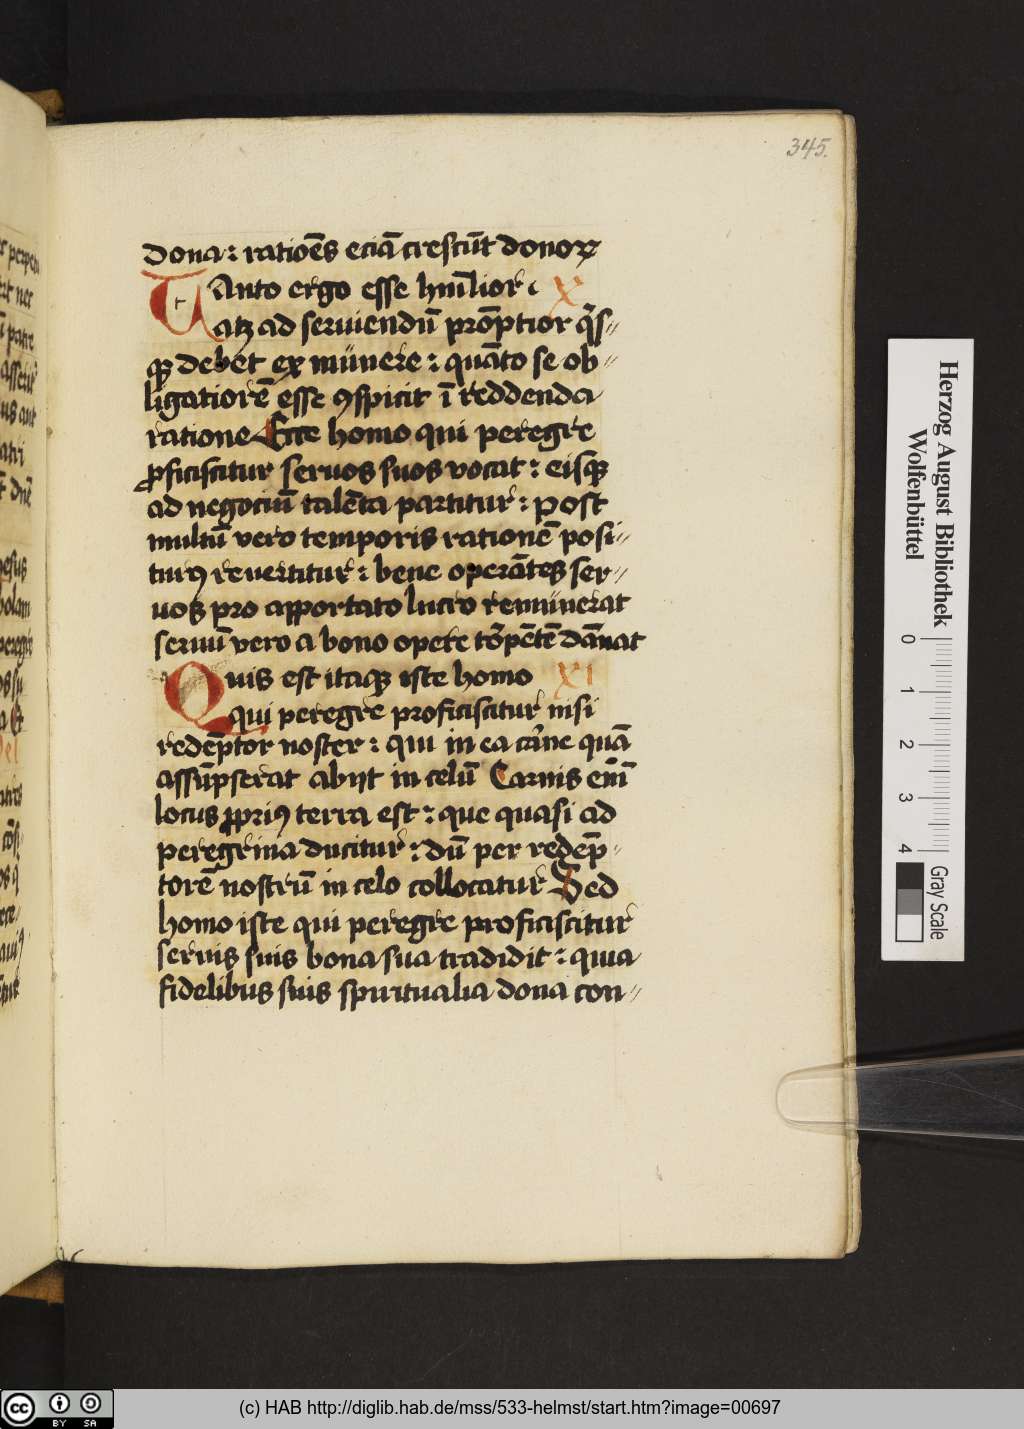 345.
dona: ratiōes eciā crescūt donoꝝ
TAnto ergo esse humīlior X
atꝫ ad seruiendū prōptior qͥs⸗
qꝫ debet ex munere: quāto se ob⸗
ligatiorē esse ꝯspicit ī reddenda
ratione Ecce homo qui peregre
ꝓficiscitur seruos suos vocat: eisqꝫ
ad negociū talēta partitur: post
multū vero temporis rationē posi⸗
turꝰ reuertitur: bene operātes ser⸗
uos pro apportato lucro remunerat
seruū vero a bono opere tōpētē dānat
Quis est itaqꝫ iste homo XI
qui peregre proficiscitur nisi
redēptor noster: qui in ea carne quā
assūpserat abijt in celū Carnis enī
locus ꝓpriꝰ terra est: que quasi ad
peregrina ducitur: dū per redēp⸗
torē nostrū in celo collocatur Sed
homo iste qui peregre proficiscitur
seruis suis bona sua tradidit: quia
fidelibus suis spiritualia dona con⸗
Herzog August Bibliothek
Wolfenbüttel
0 1 2 3 4
Gray Scale
(c) HAB http://diglib.hab.de/mss/533-helmst/start.htm?image=00697
cc BY SA